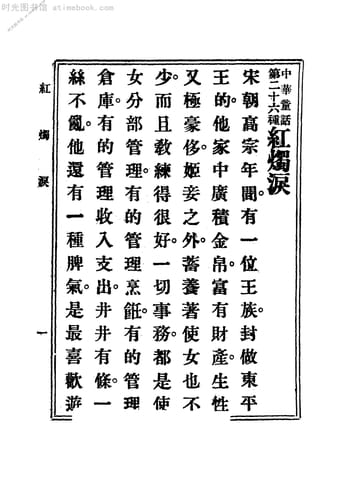 时光图书馆 atimebook.com
中華童話
第二十六種
紅燭淚
宋朝高宗年間。有一位王族。封做東平
王的。他家中廣積金帛。富有財產。生性
又極豪侈。姬妾之外。蓄養著使女也不
少。而且教練得很好。一切事務。都是使
女分部管理。有的管理烹飪。有的管理
倉庫。有的管理收入支出。井井有條。一
絲不亂。他還有一種脾氣。是最喜歡遊
紅燭淚
一